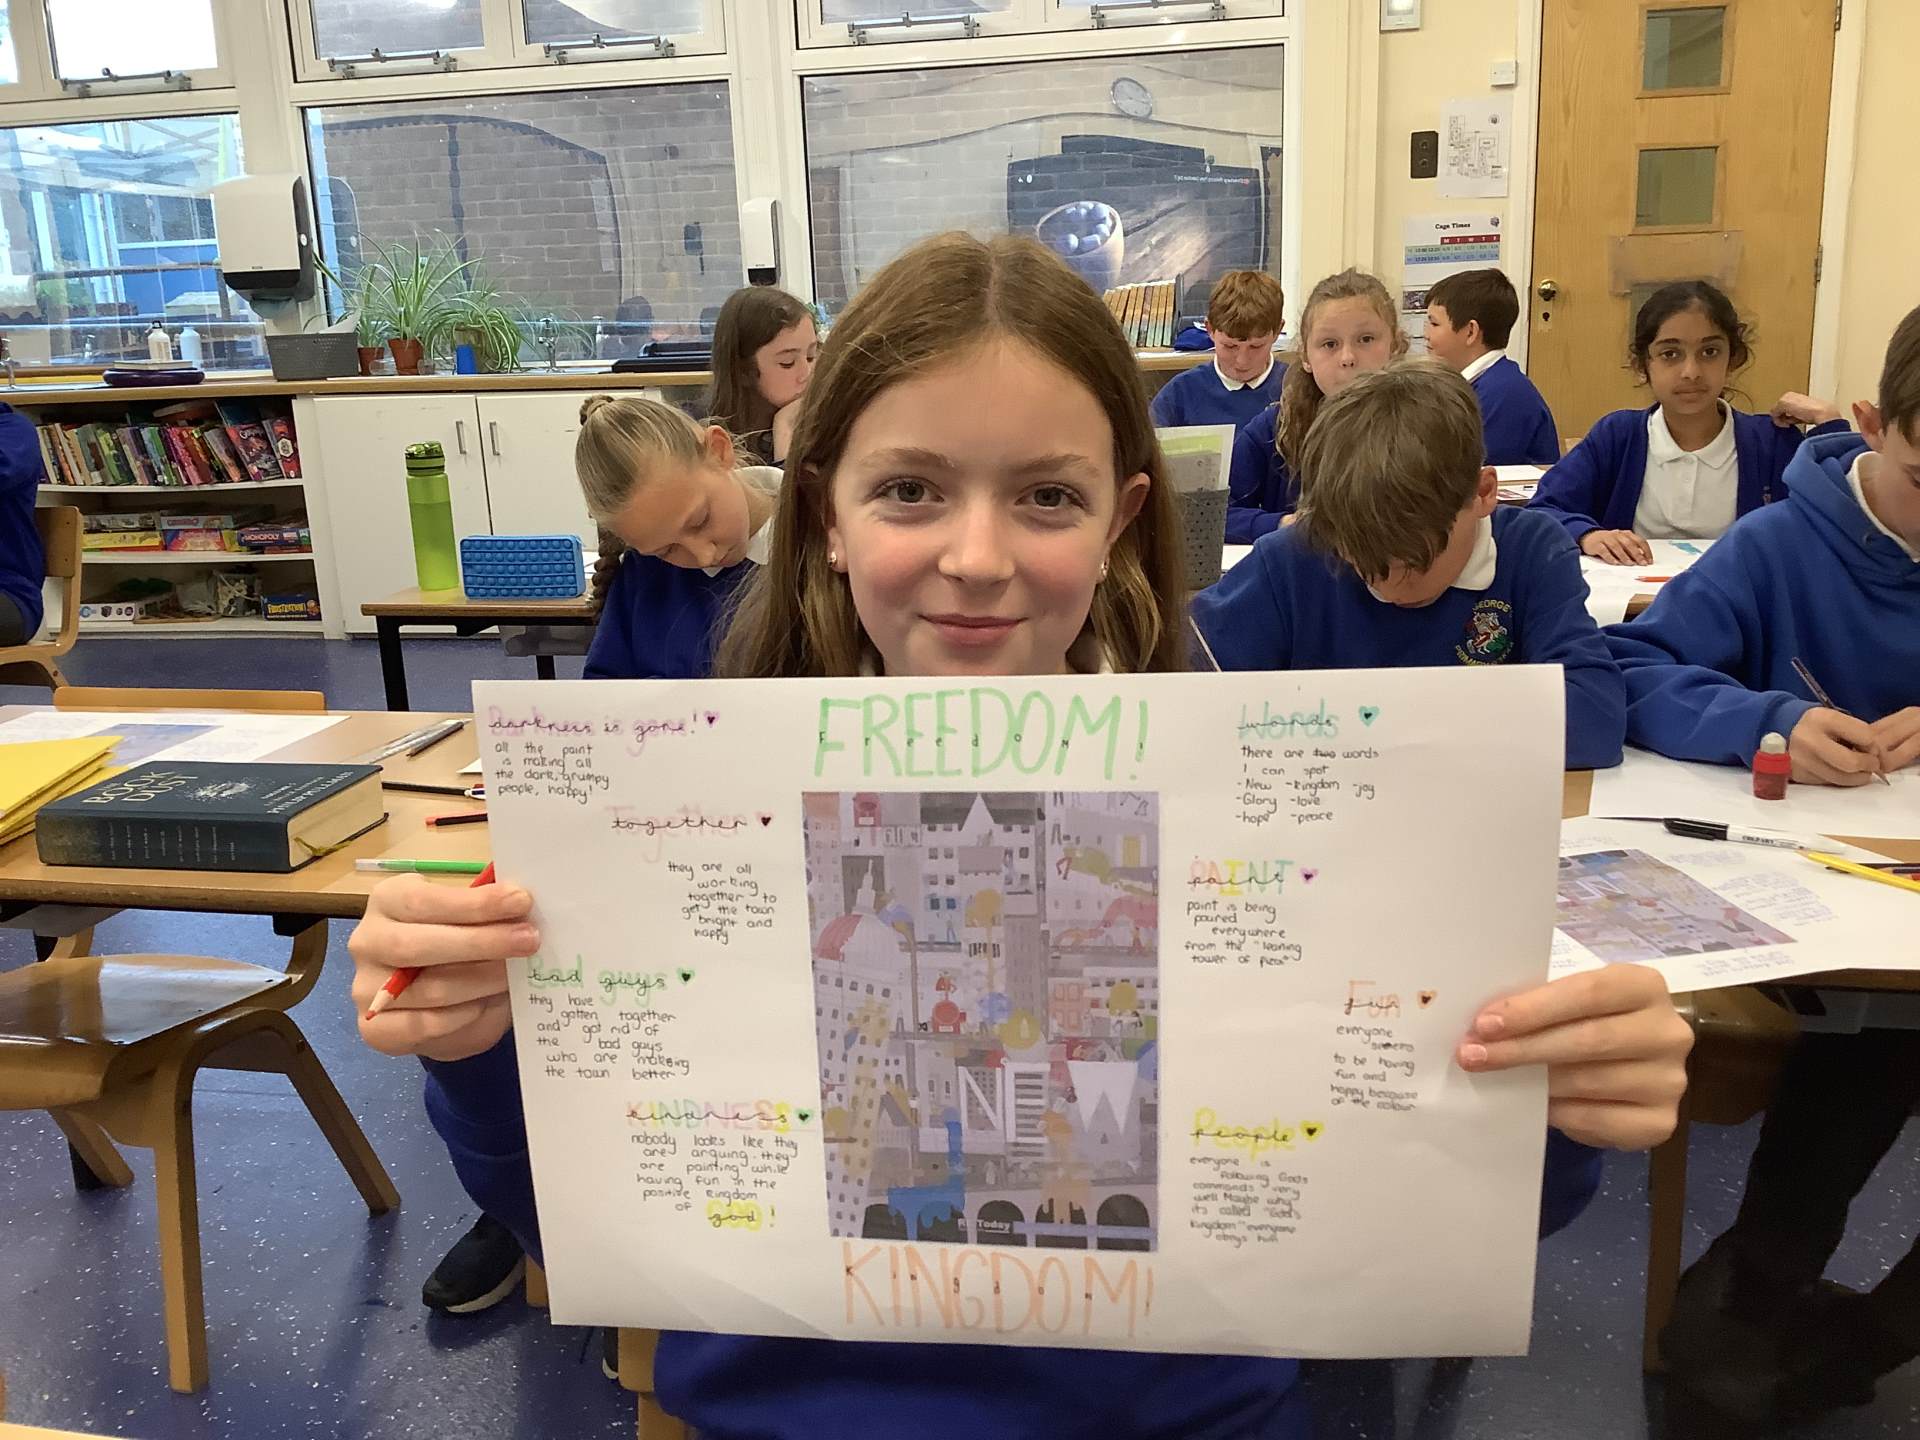 Cage Times
M T W T F
MONOPOLY
FRUSTRATION
BOOK
DUST
PHILIP PULLMAN
GEORGE'S
PRIMARY
FREEDOM!
Freedom!
Darkness is gone!
all the paint
is making all
the dark, grumpy
people, happy!
Together
together
they are all
working
together to
get the town
bright and
happy
Bad guys
bad guys
they have
gotten together
and got rid of
the bad guys
who are making
the town better
KINDNESS
kindness
nobody looks like they
are arguing. they
are painting while
having fun in the
positive kingdom
of GOD!
god
NEW
RE Today
Words
words
there are two words
I can spot
-New -kingdom -joy
-Glory -love
-hope -peace
PAINT
paint
paint is being
poured
everywhere
from the "leaning
tower of pizza"
Fun
fun
everyone
seems
to be having
fun and
happy because
of the colour
People
people
everyone is
following Gods
commands very
well Maybe why
its called "God's
kingdom" everyone
obeys him
KINGDOM!
Kingdom!